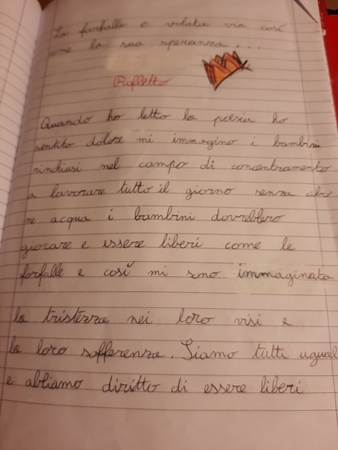 La farfalla è volata via così
me la sua speranza...
Rifletto
Quando ho letto la poesia ho
sentito dolore mi immagino i bambini
rinchiusi nel campo di concentramento
a lavorare tutto il giorno senza cibo
ne acqua i bambini dovrebbero
giocare e essere liberi come le
farfalle e così mi sono immaginata
la tristezza nei loro visi e
la loro sofferenza. Siamo tutti uguali
e abbiamo diritto di essere liberi